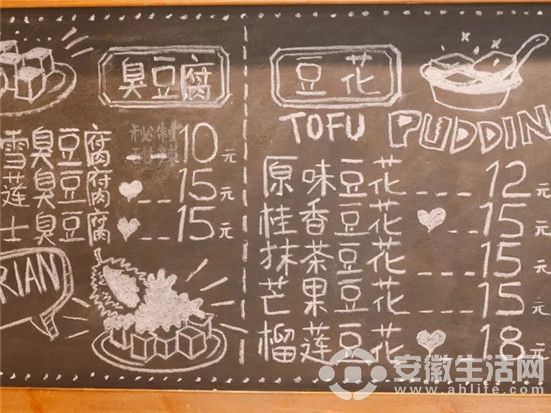 臭豆腐
雪臭豆腐 秘制甜辣 10元
莲臭豆腐 ♥ 15元
士臭豆腐 ♥ 15元
RIAN
豆花
TOFU PUDDIN
原味豆花 12元
桂香豆花 ♥ 15元
抹茶豆花 15元
芒果豆花 15元
榴莲豆花 ♥ 18元
安徽生活网
www.ahlife.com